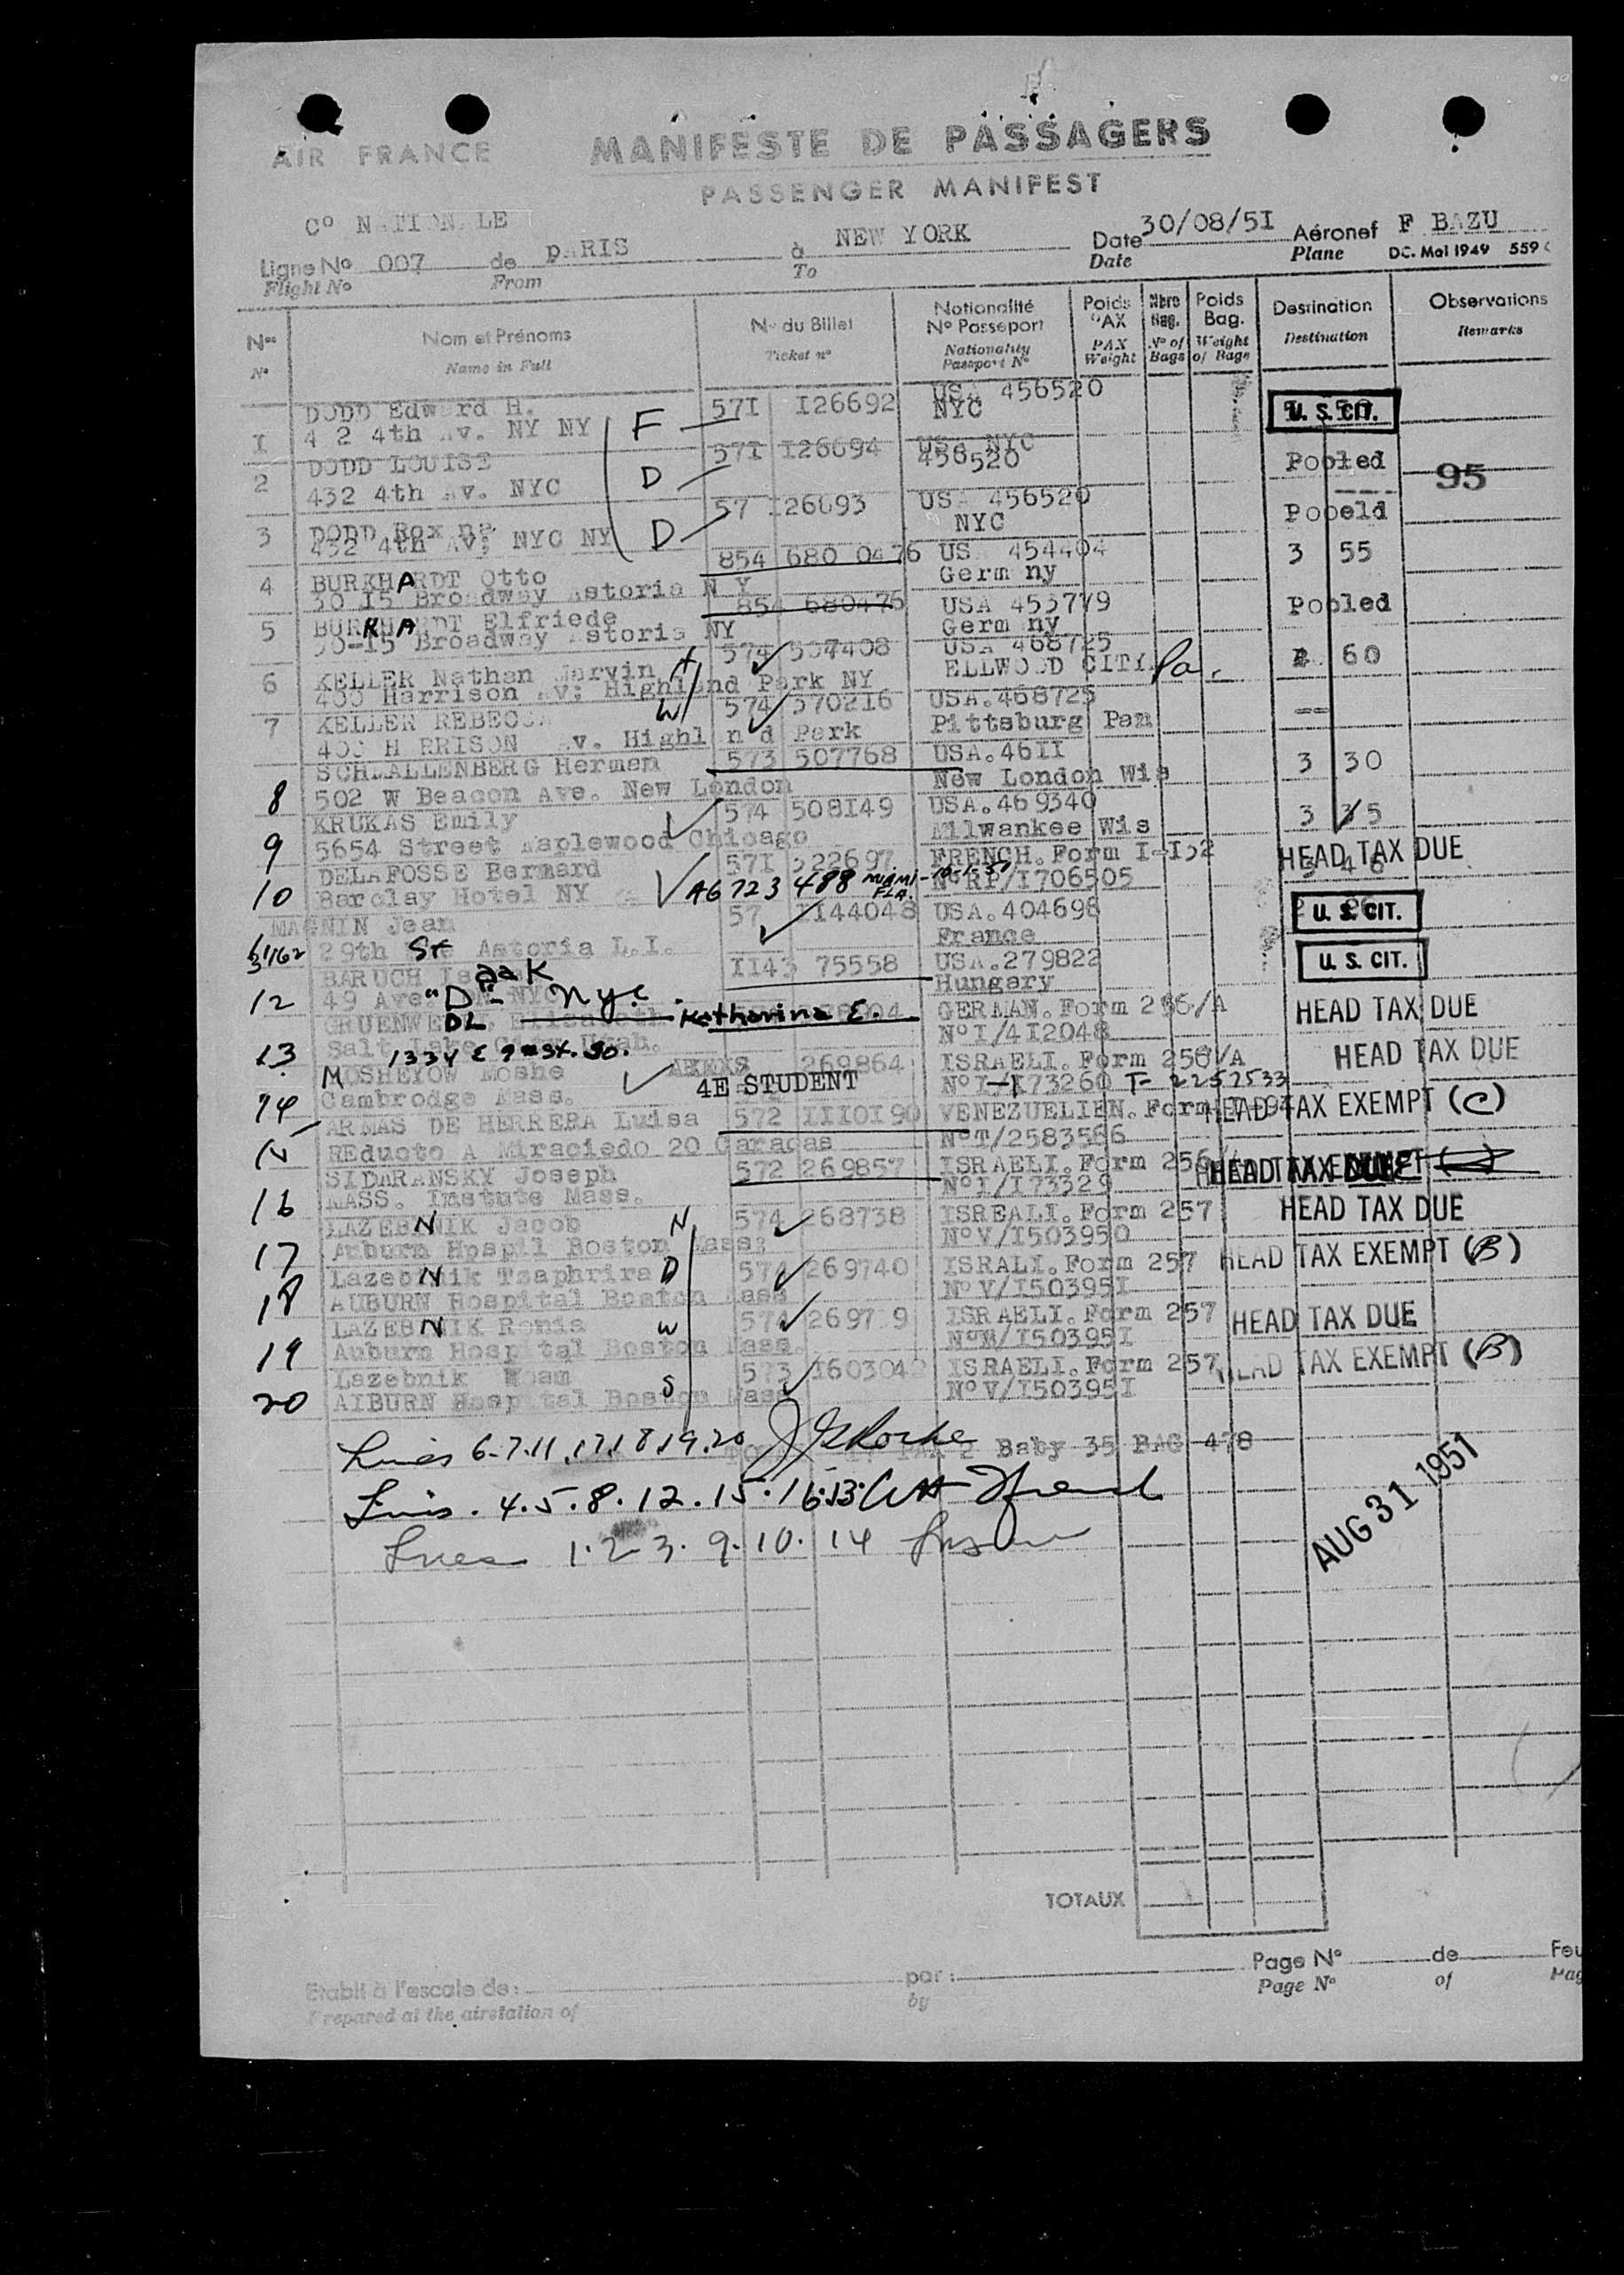 AIR FRANCE
MANIFESTE DE PASSAGERS
PASSENGER MANIFEST
Cº N TION LE
Ligne Nº 007 de PARIS à NEW YORK Date 30/08/5I Aéronef F BAZU
Flight Nº From To Date Plane DC. Mai 1949 559
Nos Nom et Prénoms Nº du Billet Nationalité Nº Passeport Poids PAX Nbre Bag. Poids Bag. Destination Observations
Nº Name in Full Ticket nº Nationality Passport Nº PAX Weight Nº of Bags Weight of Bags Destination Remarks
DODD Edw rd H. 57I I26692 USA 456520
I 4 2 4th Av. NY NY F NYC U. S. CIT.
DODD LOUISE 57I I26694 USA NYC
2 432 4th Av. NYC D 456520 Pooled 95
DODD Rox na 57 I26693 USA 456520
3 432 4th AV; NYC NY D NYC Pooeld
4 BURKHARDT Otto 854 680 0476 US 454404 3 55
30 I5 Broadway Astoria N Y Germ ny
5 BURKHARDT Elfriede 854 680475 USA 453779 Pooled
30-I5 Broadway Astoria NY Germ ny
6 KELLER Nathan Marvin 574 507408 USA 468725 60
400 Harrison Av; Highland Park NY ELLWOOD CITY. Pa.
7 KELLER REBECCA W 574 370216 USA.468725 --
400 H RRISON Av. Highl n d Park Pittsburg Pen
SCHMALLENBERG Herman 573 507768 USA.46II 3 30
8 502 W Beacon Ave. New London New London Wis
KRUKAS Emily 574 508I49 USA.469340 3 35
9 5654 Street Maplewood Chicago Milwankee Wis
DELAFOSSE Bernard 57I 322697 FRENCH. Form I-I32 HEAD TAX DUE
10 Barclay Hotel NY A6 723 488 MIAMI FLA. Nº RP/I706505
MAGNIN Jean 57 II44048 USA.404698 U. S. CIT.
29th St Astoria L.I. France
BARUCH Isaak II43 75558 USA.279822 U. S. CIT.
12 49 Ave "D" NYC Nyc. Hungary
GRUENWE Elisabeth DL Katharina E. GERMAN. Form 256/A HEAD TAX DUE
13 Salt Lake City Utah. 1334 E 9th St. So. NºI/4I2048
MOSHEYOW Moshe 269864 ISRAELI. Form 256/A HEAD TAX DUE
14 Cambrodge Mass. 4E STUDENT NºI-I/I73260 T-2252533
ARMAS DE HERRERA Luisa 572 III0I90 VENEZUELIEN. Form HEAD TAX EXEMPT (C)
REducto A Miraciedo 20 Caracas NºT/2583566
SIDARANSKY Joseph 572 269857 ISRAELI. Form 256 HEAD TAX DUE
16 MASS. Instute Mass. NºI/I73329
LAZEBNIK Jacob N 574 268738 ISREALI. Form 257 HEAD TAX DUE
17 Auburn Hospil Boston Mass; NºV/I503950
Lazebnik Tsaphrira D 574 269740 ISRALI. Form 257 HEAD TAX EXEMPT (B)
18 AUBURN Hospital Boston Mass NºV/I50395I
LAZEBNIK Ronia W 574 2697 9 ISRAELI. Form 257 HEAD TAX DUE
19 Auburn Hosp tal Boston Mass. NºV/I50395I
Lazebnik Noam S 573 I603042 ISRAELI. Form 257 HEAD TAX EXEMPT (B)
20 AIBURN Hosp tal Boston Mass NºV/I50395I
Lines 6-7.11.17.18.19.20 JG Roche 2 Baby 35 BAG 478
Lines. 4.5.8.12.15.16.13.
AUG 31 1951
Lines 1.2 3. 9.10. 14
TOTAUX
Etabli à l'escale de: par: Page Nº de
Prepared at the airstation of by Page Nº of